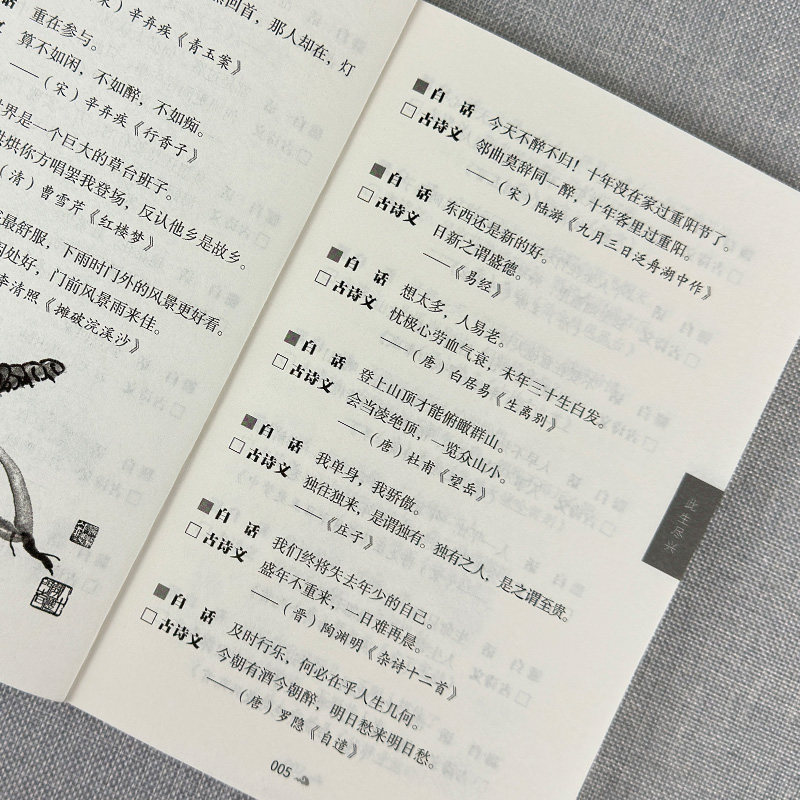 回首，那人却在，灯
宋）辛弃疾《青玉案》
重在参与。
算不如闲，不如醉，不如痴。
——（宋）辛弃疾《行香子》
世界是一个巨大的草台班子。
烘烘你方唱罢我登场，反认他乡是故乡。
（清）曹雪芹《红楼梦》
最舒服，下雨时门外的风景更好看。
处好，门前风景雨来佳。
李清照《摊破浣溪沙》
白 话 今天不醉不归！十年没在家过重阳节了。
古诗文 邻曲莫辞同一醉，十年客里过重阳。
——（宋）陆游《九月三日泛舟湖中作》
白 话 东西还是新的好。
古诗文 日新之谓盛德。
——《易经》
白 话 想太多，人易老。
古诗文 忧极心劳血气衰，未年三十生白发。
——（唐）白居易《生离别》
白 话 登上山顶才能俯瞰群山。
古诗文 会当凌绝顶，一览众山小。
——（唐）杜甫《望岳》
白 话 我单身，我骄傲。
古诗文 独往独来，是谓独有。独有之人，是之谓至贵。
——《庄子》
白 话 我们终将失去年少的自己。
古诗文 盛年不重来，一日难再晨。
——（晋）陶渊明《杂诗十二首》
白 话 及时行乐，何必在乎人生几何。
古诗文 今朝有酒今朝醉，明日愁来明日愁。
——（唐）罗隐《自遣》
005
此生尽兴